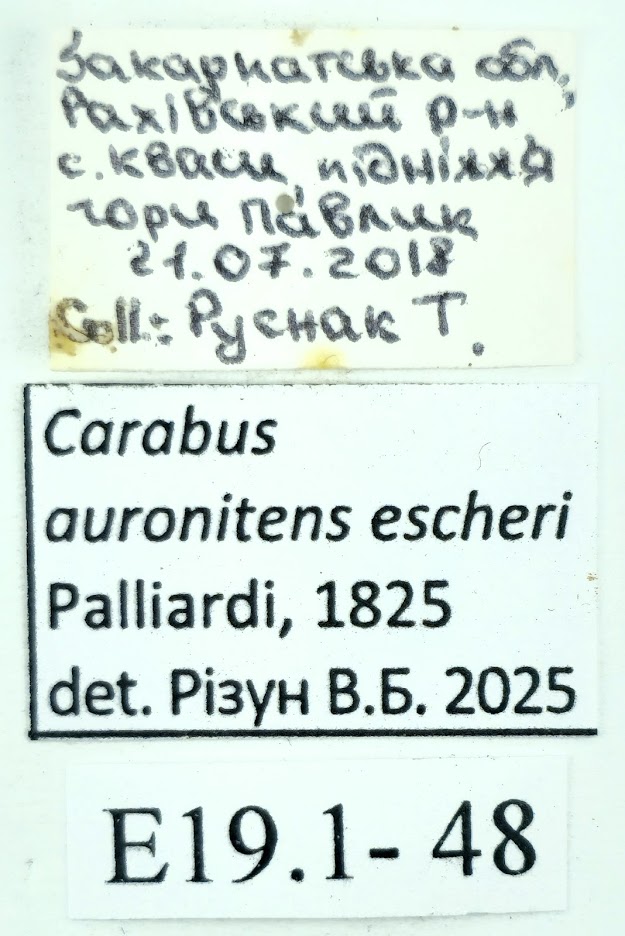 Закарпатська обл,
Рахівський р-н
с. Кваси, підніжжя
гори Павлик
21.07.2018
Coll.: Руснак Т.
Carabus
auronitens escheri
Palliardi, 1825
det. Різун В.Б. 2025
E19.1- 48